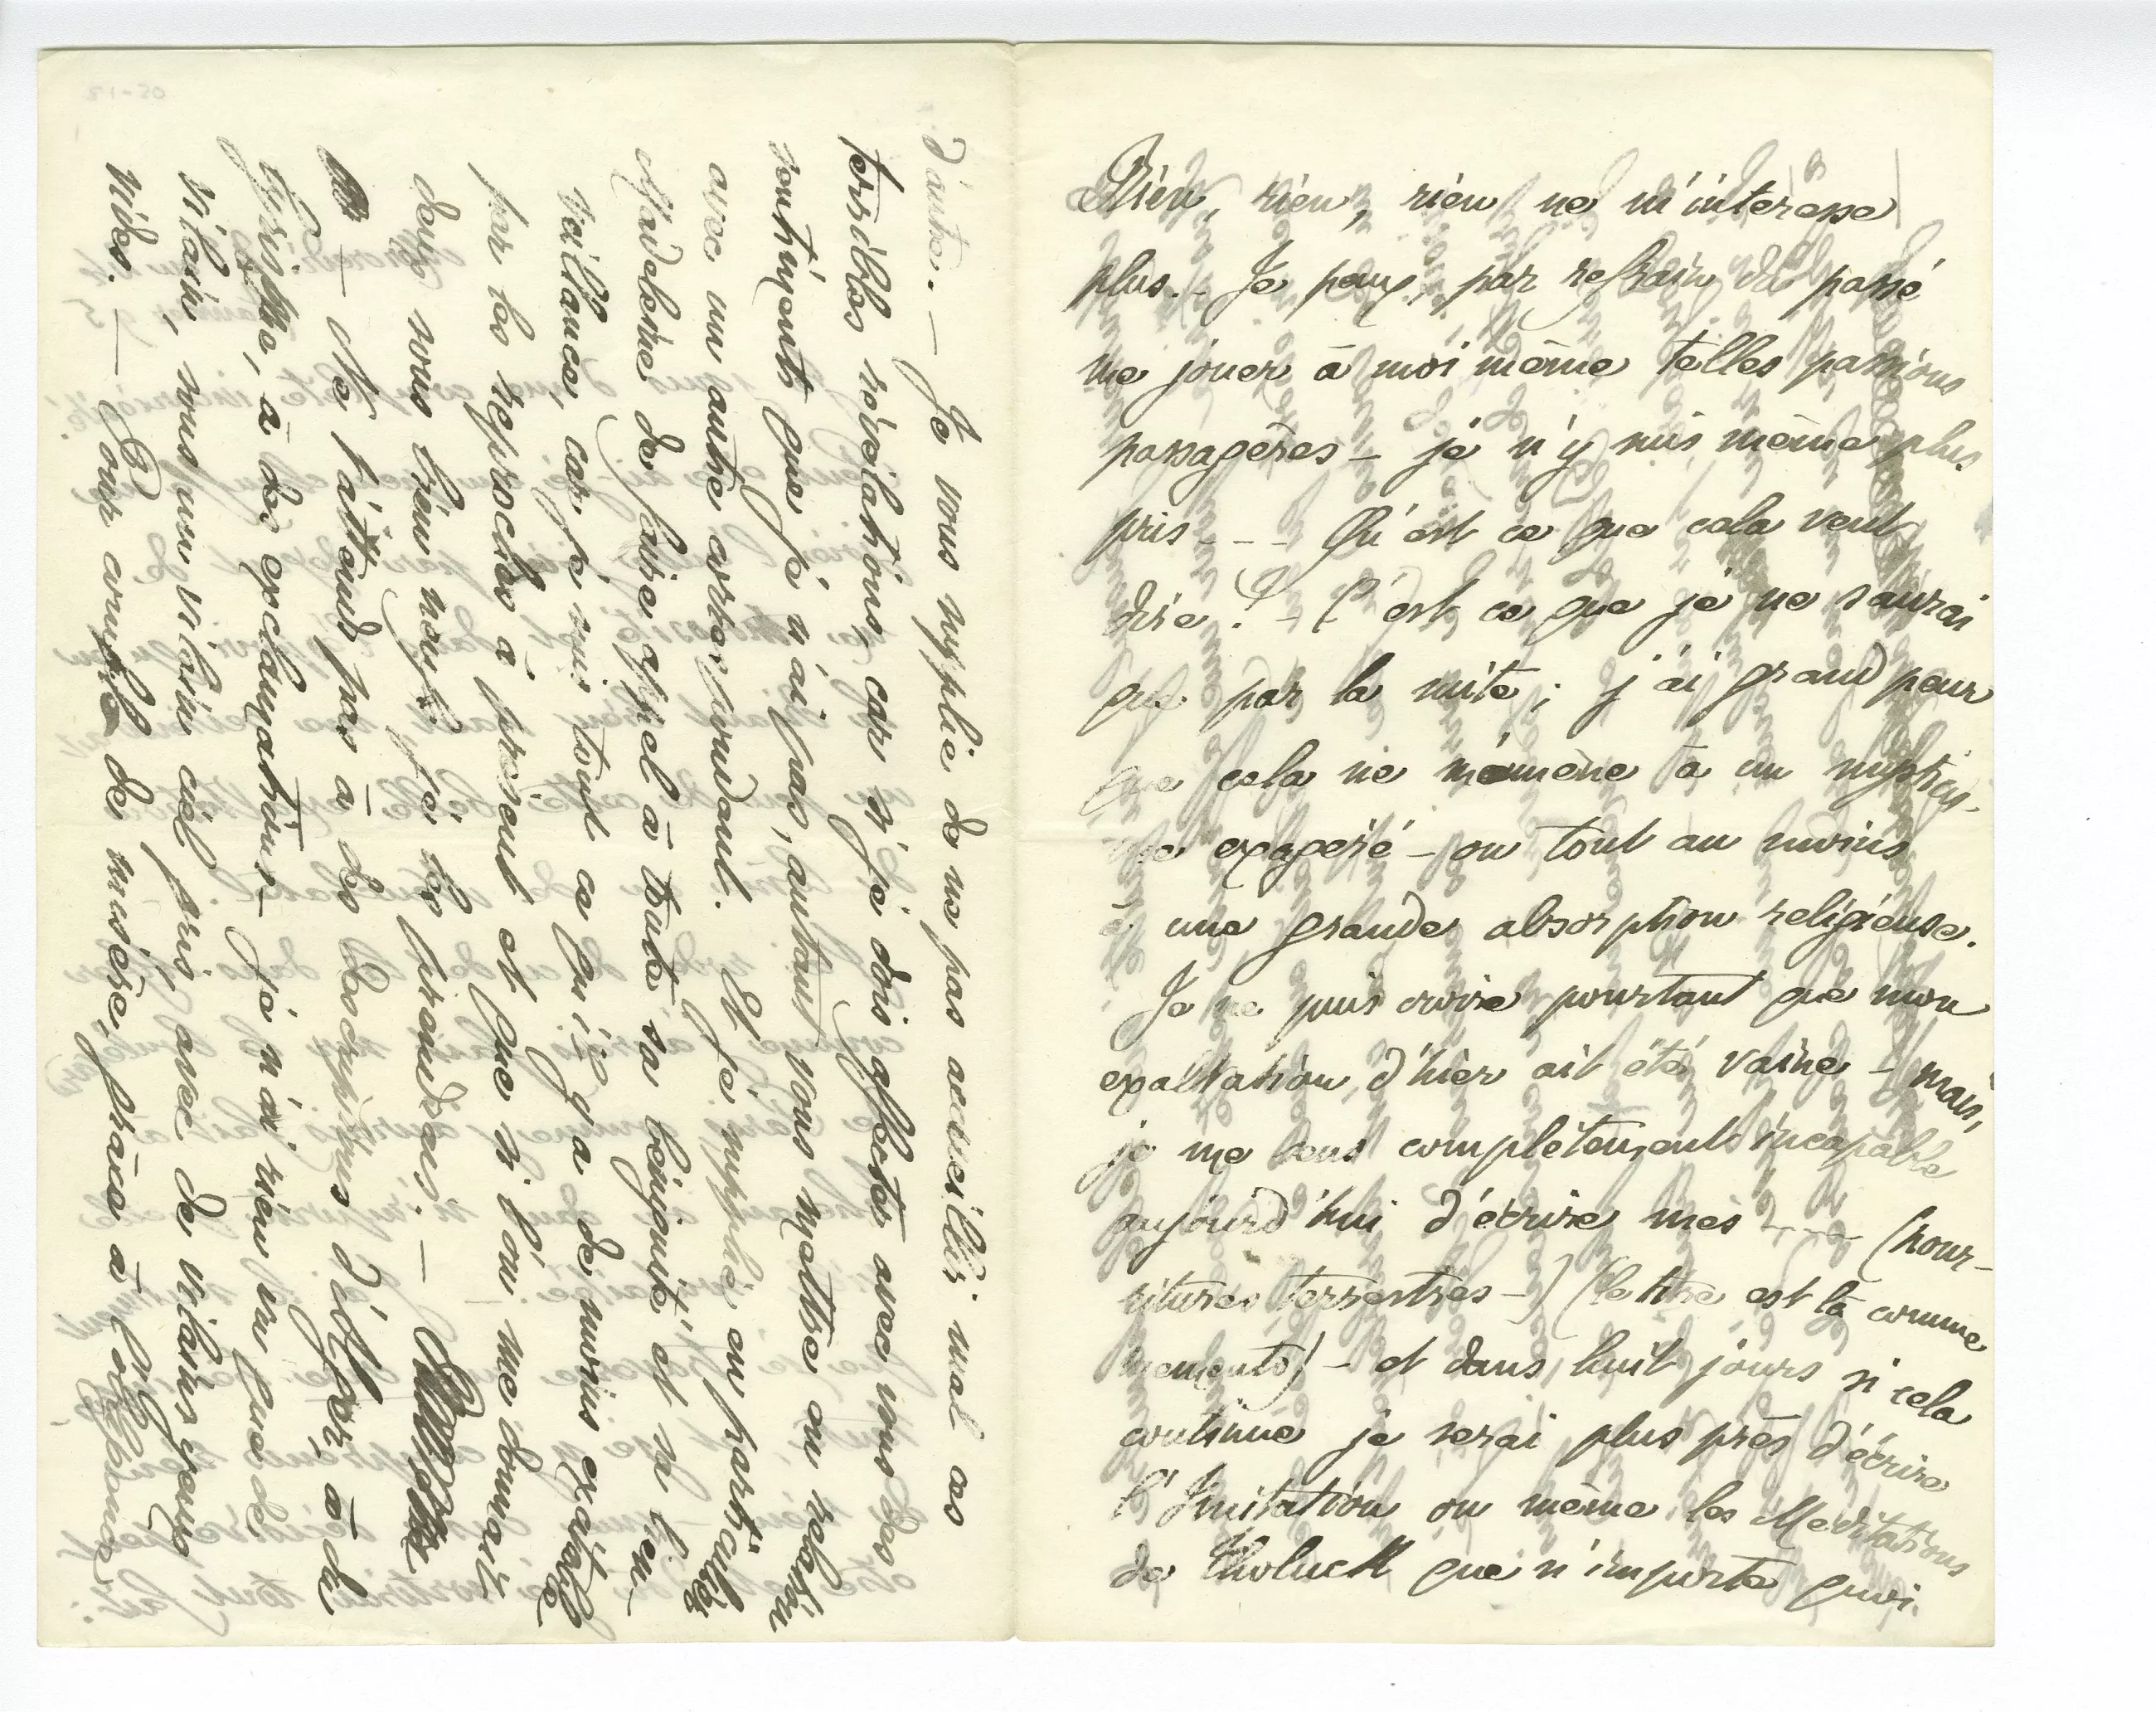 Rien, rien, rien ne m'intéresse
plus. – Je peux, par refrain du passé
me jouer à moi même telles passions
passagères – je n'y suis même plus
pris – – – Qu'est ce que cela veut
dire ! – C'est ce que je ne saurai
que par la suite ; j'ai grand peur
que cela ne m'amène à un mysticis-
me exagéré – ou tout au moins
à une grande absorption religieuse.
Je ne puis croire pourtant que mon
exaltation d'hier ait été vaine – mais,
je me sens complètement incapable
aujourd'hui d'écrire mes ---- (nour-
ritures terrestres –) (le titre est là comme
memento) – et dans huit jours si cela
continue je serai plus près d'écrire
l'Imitation ou même les Méditations
de Tholuck que n'importe quoi
d'autre. – Je vous supplie de ne pas accueillir mal ces
terribles révélations, car si je dois affecter avec vous des
sentiments que je n'ai pas, autant vous mettre en relation
avec un autre correspondant. Et je supplie en particulier
Madeleine de faire appel à toute sa longanimité et sa bien-
veillance, car je suis tout ce qu'il y a de moins excitable
par les reproches à présent et que si l'on me donnait
deux sous bien nayfs je les prendrais. –
– Ne t'attends pas à des descriptions d'Alger, à de
Biskra, à des exclamations – je n'ai rien vu que de
vilain, sous un vilain ciel pris avec de vilains yeux
vides. – Pour comble de misère, grâce à